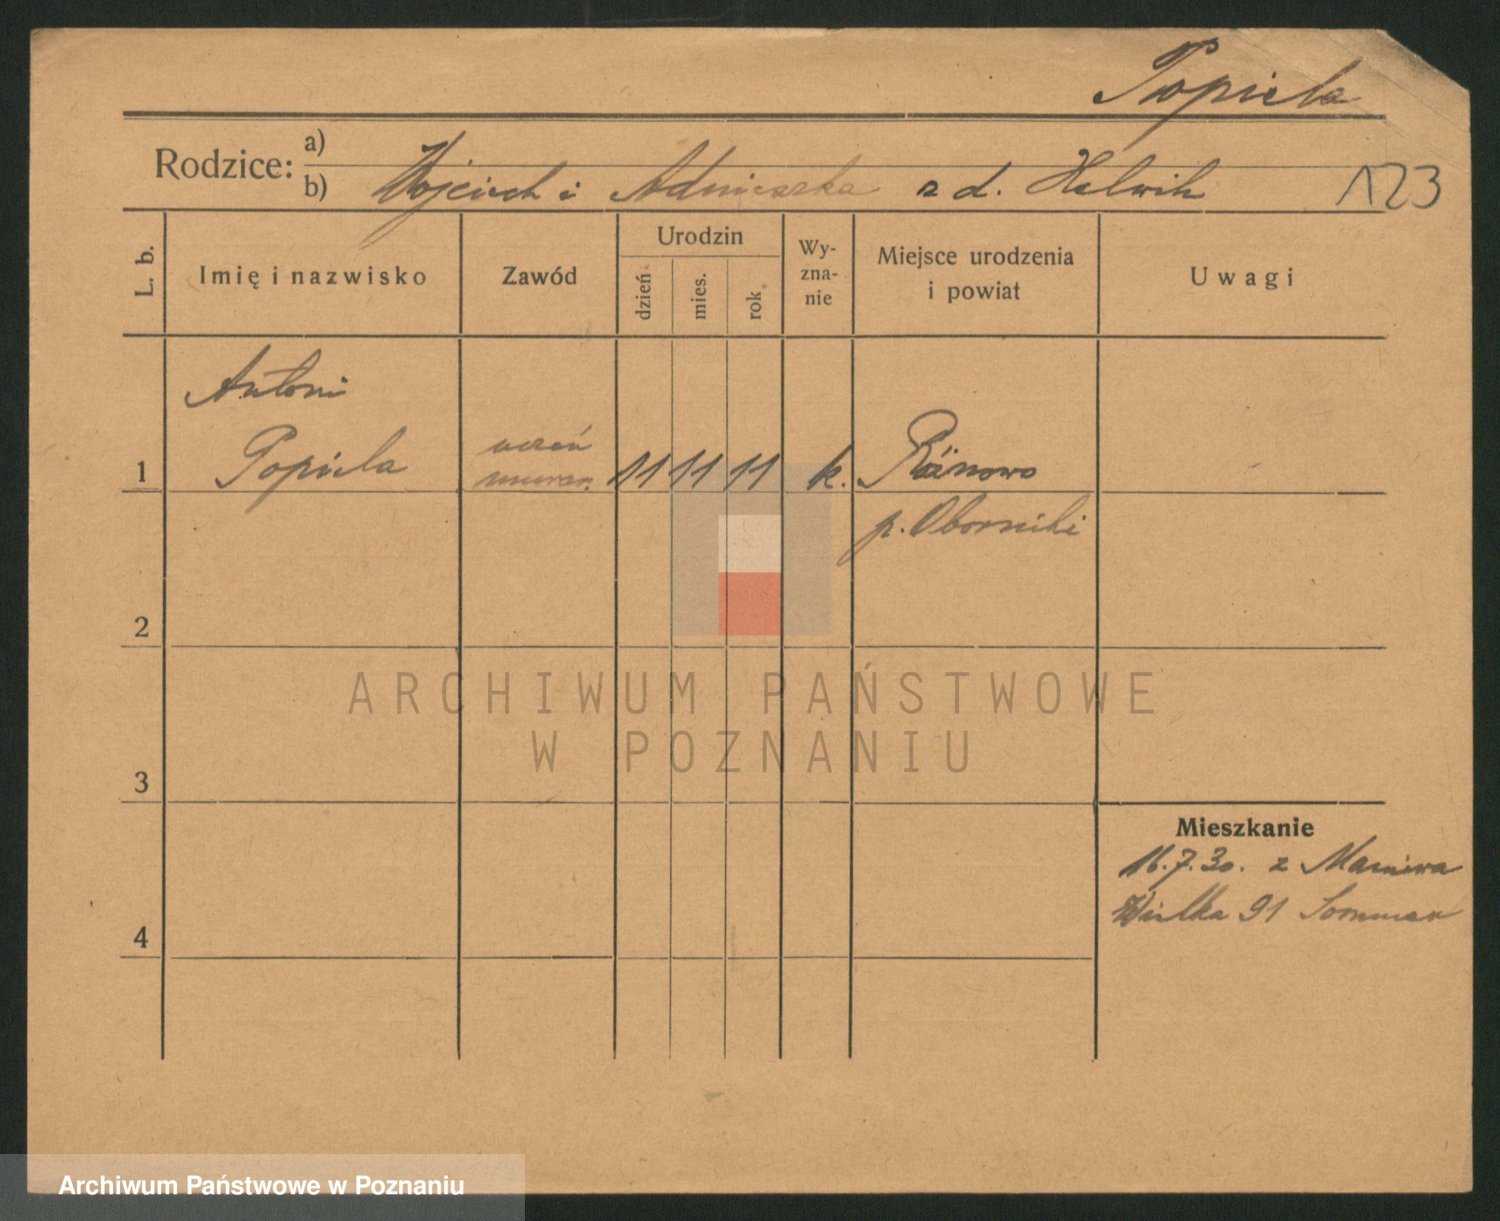 Popiela
Rodzice: a)
b) Wojciech i Agnieszka z d. Helwik
123
L. b.
Imię i nazwisko
Zawód
Urodzin
dzień
mies.
rok
Wy-
zna-
nie
Miejsce urodzenia
i powiat
Uwagi
Antoni
1 Popiela uczeń murar. 11 11 11 k. Rożnowo
p. Oborniki
2
ARCHIWUM PAŃSTWOWE
W POZNANIU
3
Mieszkanie
16.7.30. z
Wielka 91
4
Archiwum Państwowe w Poznaniu